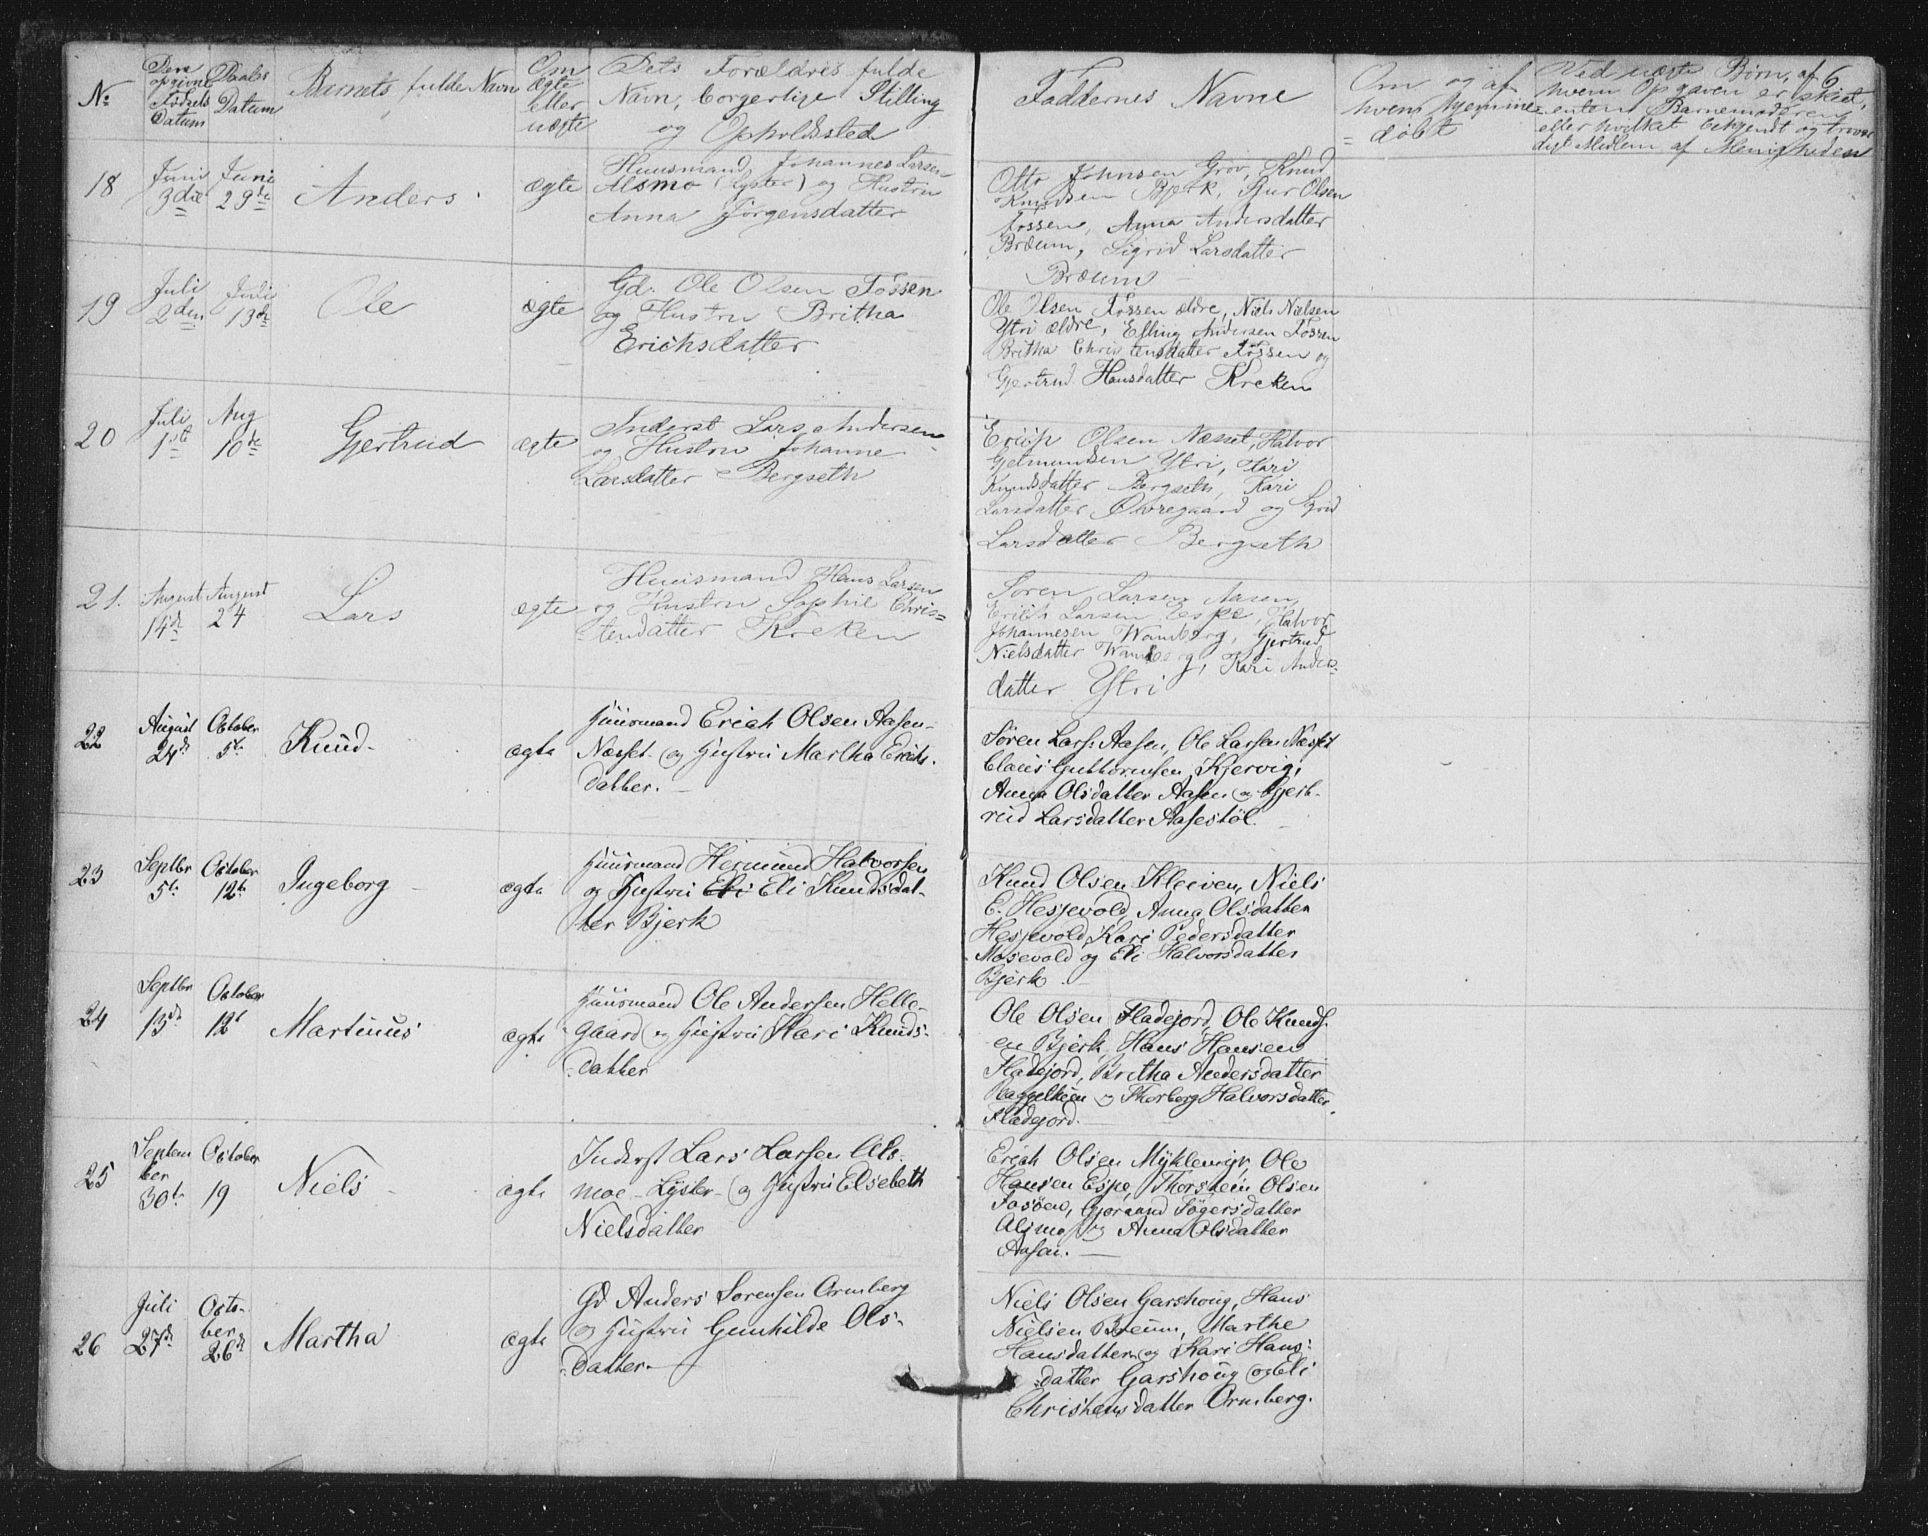 6
No
Den opgivne Fødsels Datum
Daabs Datum
Barnets fulde Navn
Om ægte eller uægte
Dets Forældres fulde
Navn, borgerlige Stilling
og Opholdssted
Faddernes Navne
Om og af
hvem hjemme=
=døbt
Ved uægte Børn, af
hvem Opgaven er skeet,
enten Barnemoderen
eller hvilket bekjendt og trovær
digt Medlem af Menigheden
18
Juni
3die
Juni
29de
Anders
ægte
Huusmand Johannes Larsen
Alsmo (Lyster) og Hustru
Anna Jørgensdatter
Otto Johnsen Grov, Knud
Knudsen Bjerk, Sjur Olsen
Fossen, Anna Andersdatter
Bræum, Sigrid Larsdatter
Bræum
19
Juli
2den
Juli
13de
Ole
ægte
Gd. Ole Olsen Fossen
og Hustru Britha
Erichsdatter
Ole Olsen Fossen ældre, Niels Nielsen
Ytri ældre, Elling Andersen Fossen
Britha Christensdatter Fossen og
Gjertrud Hansdatter Kreken
20
Juli
1ste
Aug
10de
Gjertrud
ægte
Inderst Lars Andersen
og Hustru Johanne
Larsdatter Bergseth
Erich Olsen Næsset, Halvor
Getmundsen Ytri, Kari
Knudsdatter Bergseth, Kari
Larsdatter Øvregaard og
Larsdatter Bergseth
21.
August
14de
August
24
Lars
ægte
Huusmand Hans Larsen
og Hustru Sophie Chris=
tensdatter Kreken
Søren Larsen Aasen
Erich Larsen Espe, Halvor
Johannesen Wamberg, Gjertrud
Nielsdatter Wamberg, Kari Anders
datter Ytri
22
August
24de
October
5te
Knud
ægte
Huusmand Erich Olsen Aasen
Næsset og Hustru Martha Erichs
datter.
Søren Lars: Aasen, Ole Larsen Næsset
Claus Guttormsen Kjervig,
Anna Olsdatter Aasen og Gjert-
rud Larsdatter Aasestøl
23
Septbr
5te
October
12te
Ingeborg
ægte
Huusmand Hermund Halvorsen
og Hustru Eli Eli Knudsdat-
ter Bjerk
Knud Olsen Kleiven, Niels
E. Hesjevold, Anna Olsdatter
Hesjevold, Kari Pedersdatter
Mosevold og Eli Halvorsdatter
Bjerk.
24
Septbr
13de
October
12t
Martinus
ægte
Huusmand Ole Andersen Helle-
gaard og Hustru Kari Knuds-
datter
Ole Olsen Fladejord, Ole Knuds-
en Bjerk, Hans Hansen
Fladejord, Britha Andersdatter
og Thorborg Halvorsdatter
Fladejord.
25
Septem
ber
30te
October
19
Niels
ægte
Inderst Lars Larsen Als-
moe - Lyster - og Hustru Elsebeth
Nielsdatter
Erich Olsen Myklemyr, Ole
Hansen Espe, Thorstein Olsen
Fosøen, Gjoraand Søgersdatter
Alsmo og Anna Olsdatter
Aasen.
26
Juli
27de
Octo-
ber
26de
Martha
ægte
Gd Anders Sørensen Ormberg
og Hustru Gunhilde Ols-
datter
Niels Olsen Garshoug, Hans
Nielsen Breum, Marthe
Hansdatter og Kari Hans-
datter Garshoug og Eli
Christensdatter Ormberg.